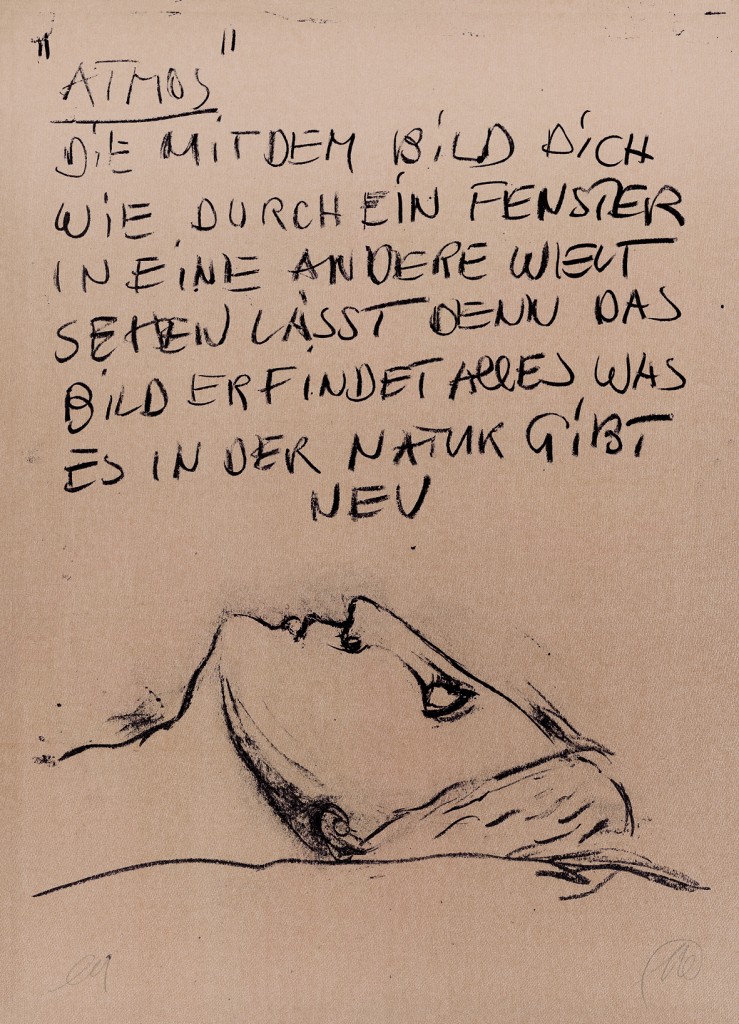 "ATMOS"
DIE MIT DEM BILD DICH
WIE DURCH EIN FENSTER
IN EINE ANDERE WELT
SEHEN LÄSST DENN DAS
BILD ERFINDET ALLES WAS
ES IN DER NATUR GIBT
NEU